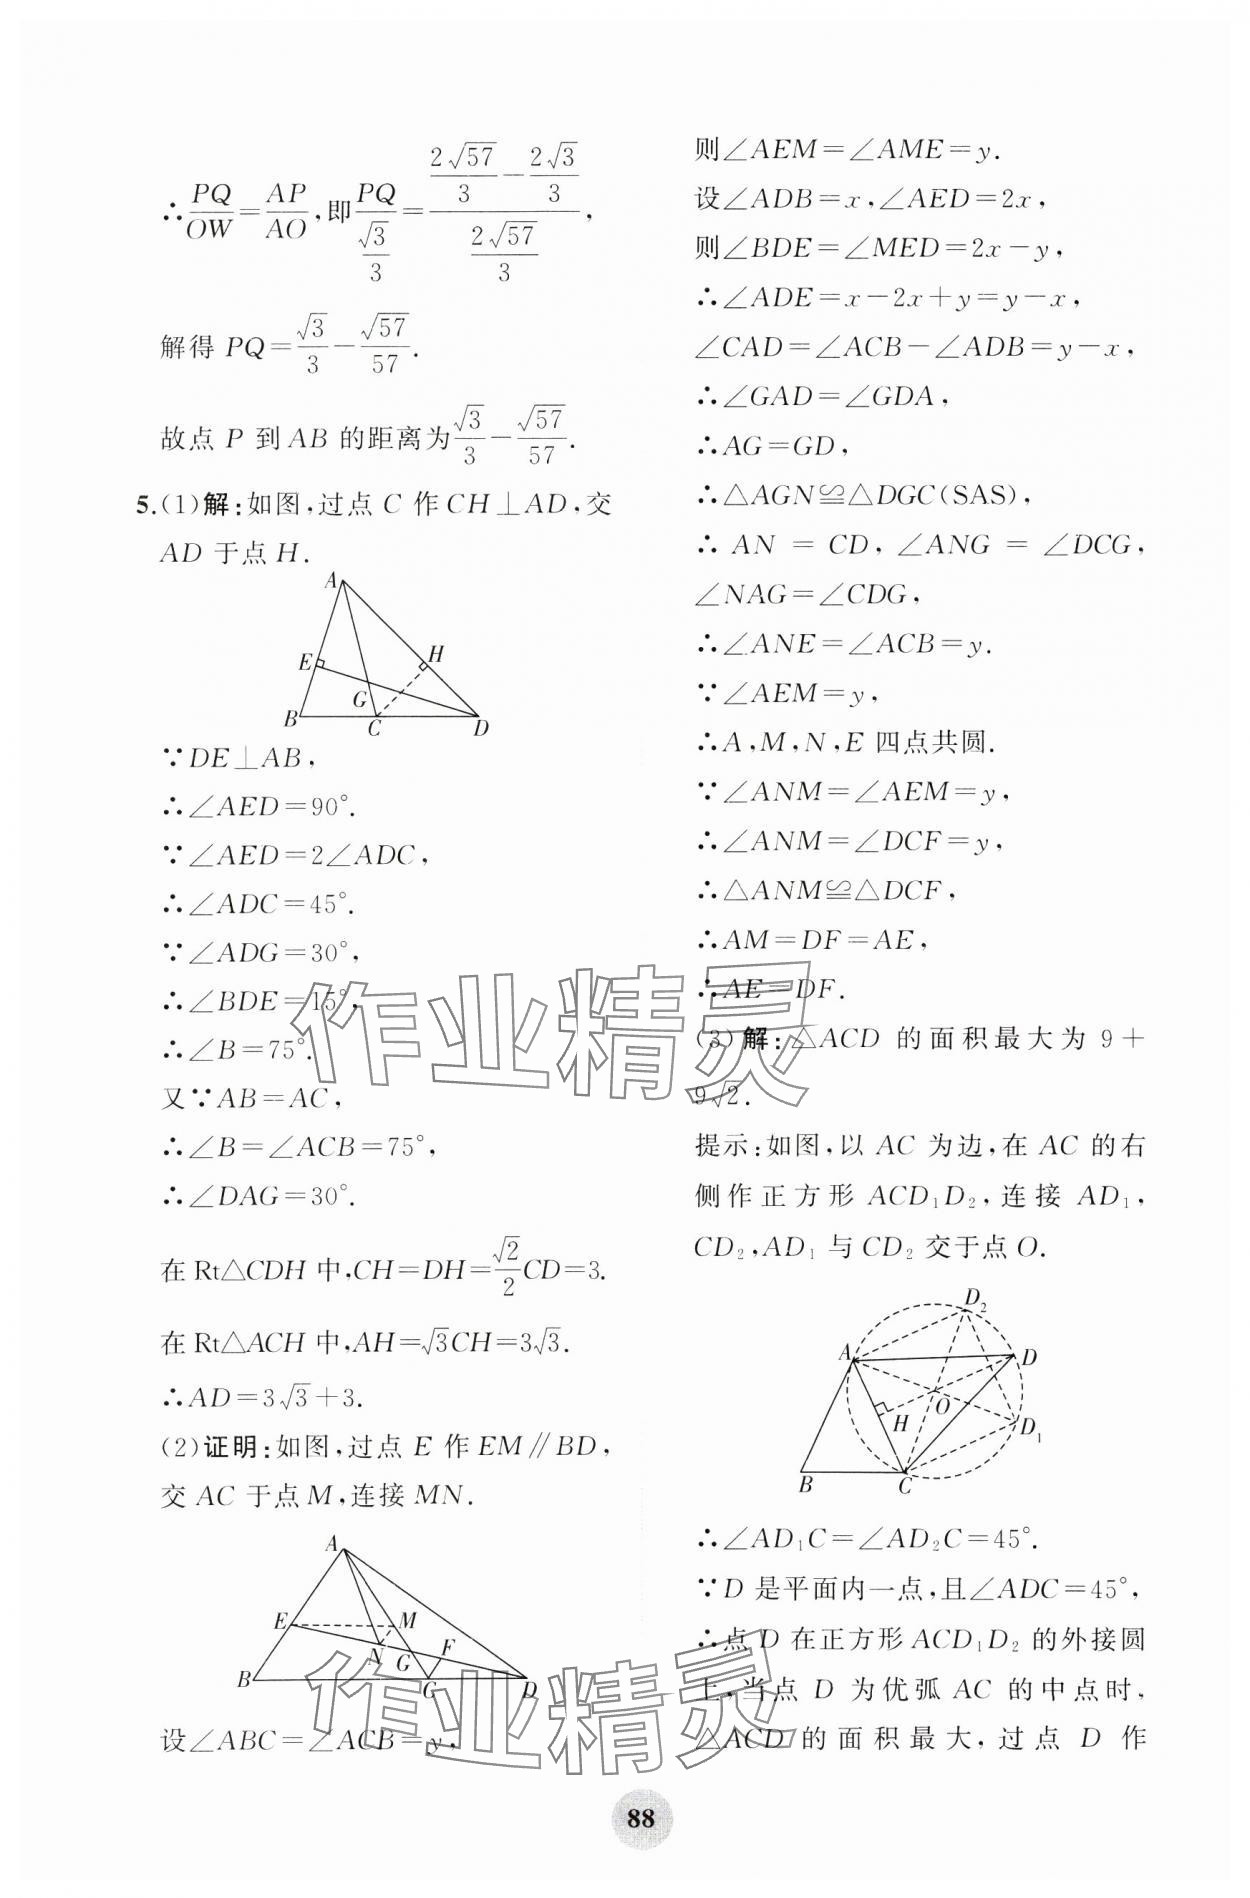 ∴PQ/OW=AP/AO,即PQ/(√3/3)=(2√57/3-2√3/3)/(2√57/3),
解得 PQ=√3/3-√57/57.
故点 P 到 AB 的距离为√3/3-√57/57.
5.(1)解:如图,过点 C 作 CH⊥AD,交
AD 于点 H.
A
E
H
G
B
C
D
∵DE⊥AB,
∴∠AED=90°.
∵∠AED=2∠ADC,
∴∠ADC=45°.
∵∠ADG=30°,
∴∠BDE=15°,
∴∠B=75°.
又∵AB=AC,
∴∠B=∠ACB=75°,
∴∠DAG=30°.
在 Rt△CDH 中,CH=DH=√2/2CD=3.
在 Rt△ACH 中,AH=√3CH=3√3.
∴AD=3√3+3.
(2)证明:如图,过点 E 作 EM∥BD,
交 AC 于点 M,连接 MN.
A
E
M
N
G
F
B
C
D
设∠ABC=∠ACB=y,
则∠AEM=∠AME=y.
设∠ADB=x,∠AED=2x,
则∠BDE=∠MED=2x-y,
∴∠ADE=x-2x+y=y-x,
∠CAD=∠ACB-∠ADB=y-x,
∴∠GAD=∠GDA,
∴AG=GD,
∴△AGN≌△DGC(SAS),
∴ AN = CD, ∠ANG = ∠DCG,
∠NAG=∠CDG,
∴∠ANE=∠ACB=y.
∵∠AEM=y,
∴A,M,N,E 四点共圆.
∵∠ANM=∠AEM=y,
∴∠ANM=∠DCF=y,
∴△ANM≌△DCF,
∴AM=DF=AE,
∴AE=DF.
(3)解:△ACD 的面积最大为 9+
9√2.
提示:如图,以 AC 为边,在 AC 的右
侧作正方形 ACD₁D₂,连接 AD₁,
CD₂,AD₁ 与 CD₂ 交于点 O.
D₂
A
D
O
H
D₁
B
C
∴∠AD₁C=∠AD₂C=45°.
∵D 是平面内一点,且∠ADC=45°,
∴点 D 在正方形 ACD₁D₂ 的外接圆
上,当点 D 为优弧 AC 的中点时,
△ACD 的面积最大,过点 D 作
作业精灵
作业精灵
88